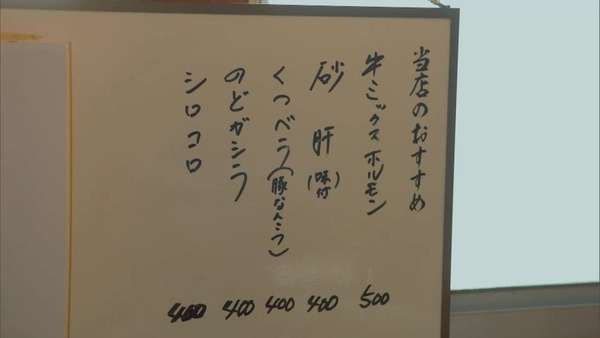 当店のおすすめ
牛ミックスホルモン 500
砂肝(味付) 400
くつベラ(豚なんこつ) 400
のどガシラ 400
シロコロ 400